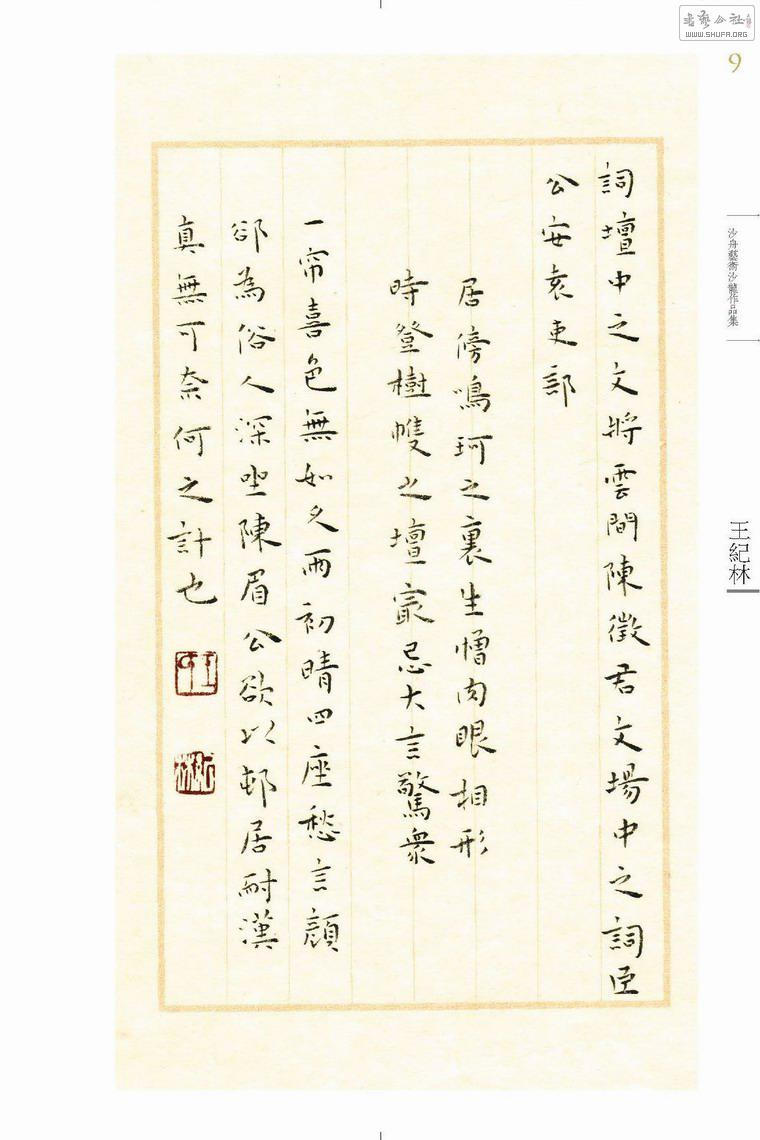 書藝公社
WWW.SHUFA.ORG
9
沙舟藝術沙龍作品集
王紀林
詞壇中之文將雲間陳徵君文場中之詞臣
公安袁吏部
居傍鳴珂之裏生憎肉眼相形
時登樹幟之壇㝡忌大言驚衆
一帘喜色無如久雨初晴四座愁言顏
郤為俗人深坐陳眉公欲以邨居耐漢
真無可奈何之計也